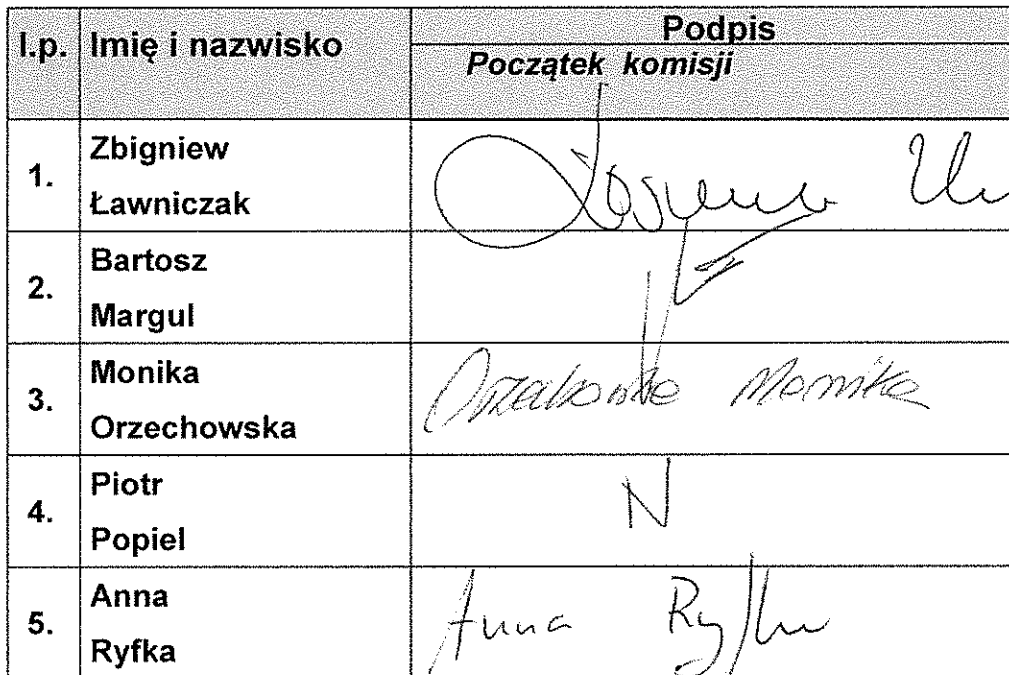 l.p. Imię i nazwisko Podpis
Początek komisji
1. Zbigniew
Ławniczak
2. Bartosz
Margul
N
3. Monika
Orzechowska
Monika
4. Piotr
Popiel
N
5. Anna
Ryfka
Anna Ryfka